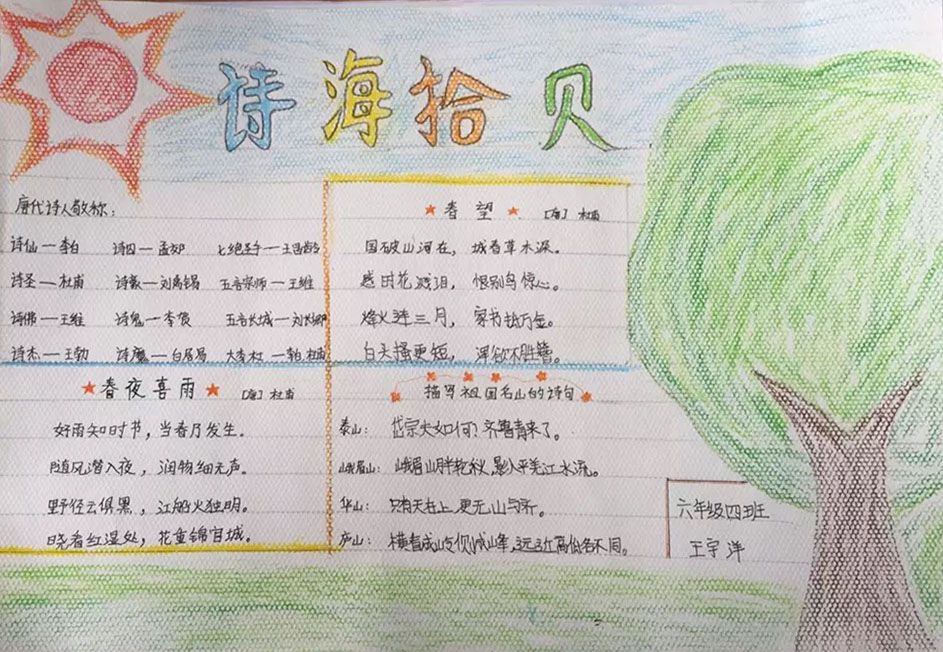 诗海拾贝
唐代诗人敬称:
诗仙—李白 诗囚—孟郊 七绝圣手—王昌龄
诗圣—杜甫 诗豪—刘禹锡 五言宗师—王维
诗佛—王维 诗鬼—李贺 五言长城—刘长卿
诗杰—王勃 诗魔—白居易 大李杜—李白,杜甫
春望 [唐] 杜甫
国破山河在,城春草木深。
感时花溅泪,恨别鸟惊心。
烽火连三月,家书抵万金。
白头搔更短,浑欲不胜簪。
春夜喜雨 [唐] 杜甫
好雨知时节,当春乃发生。
随风潜入夜,润物细无声。
野径云俱黑,江船火独明。
晓看红湿处,花重锦官城。
描写祖国名山的诗句
泰山:岱宗夫如何?齐鲁青未了。
峨眉山:峨眉山月半轮秋,影入平羌江水流。
华山:只有天在上,更无山与齐。
庐山:横看成岭侧成峰,远近高低各不同。
六年级四班
王宇洋